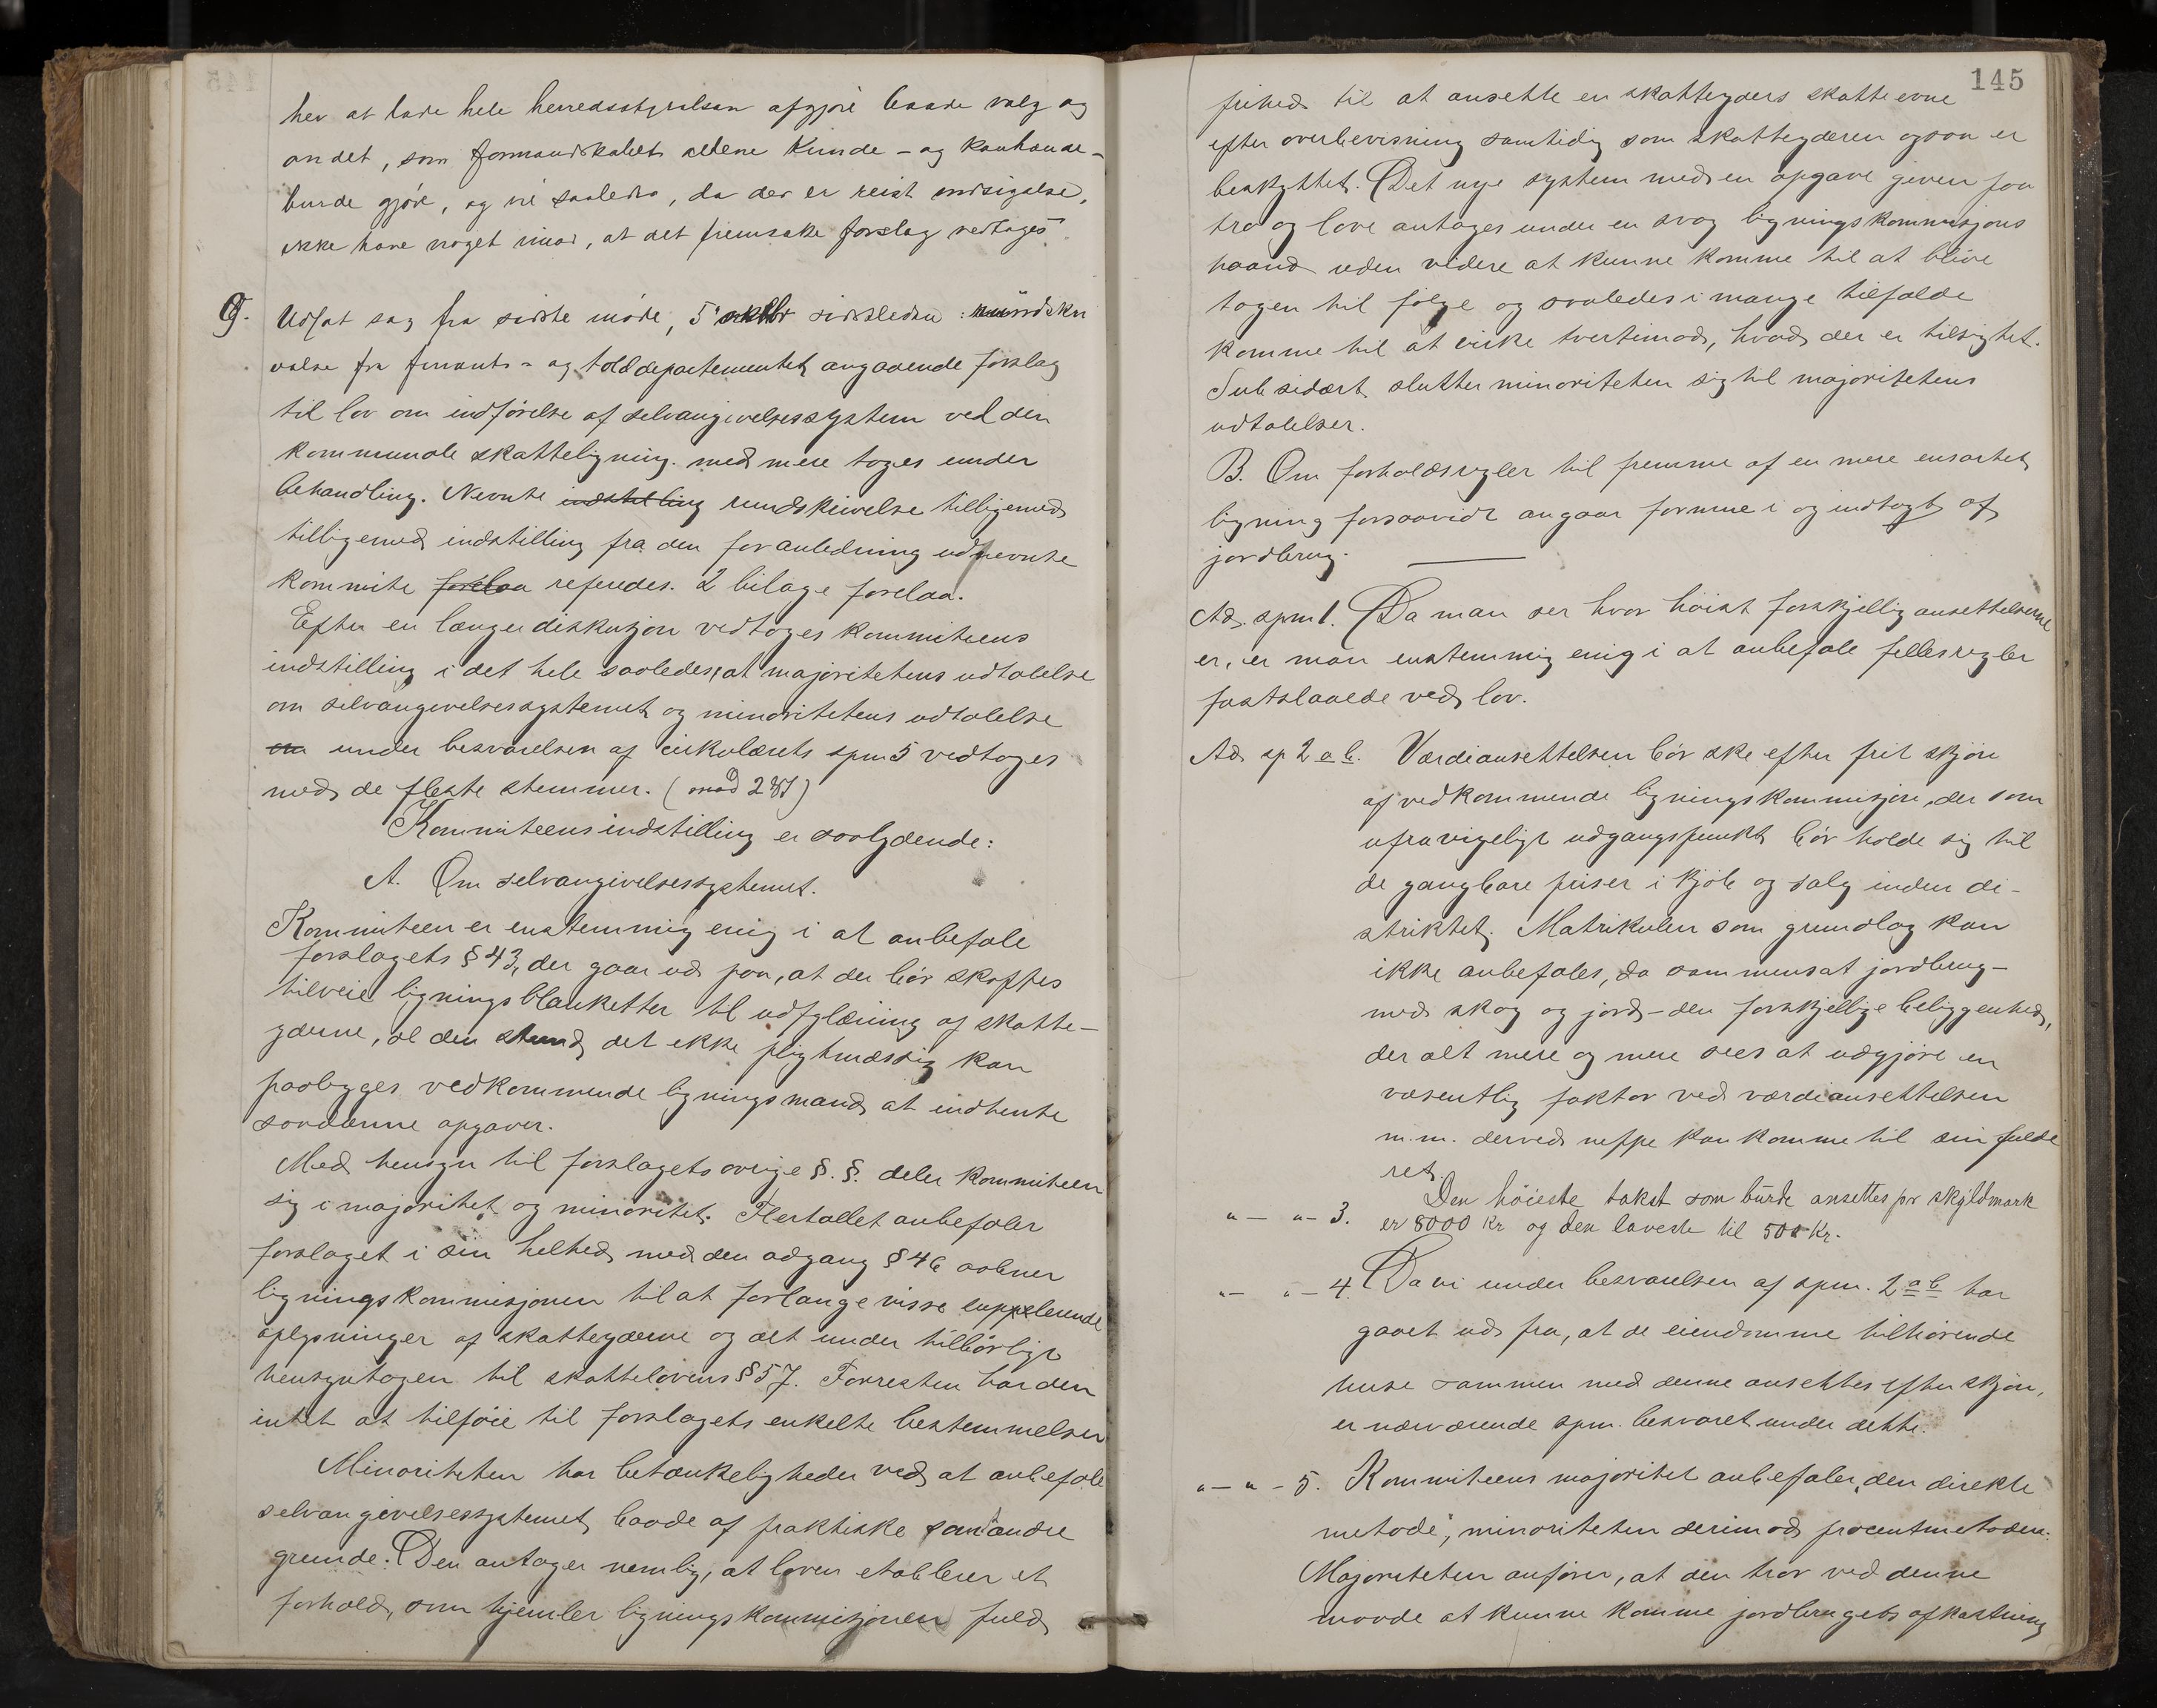 her at lade hele herredsstyrelsen afgjøre baade valg og
andet, som formandskabets aldene kunde - og kanhænde -
burde gjøre, og vil saaledes, da der er reist indsigelse,
ikke have noget imod, at det fremsatte forslag vedtages
9. Udsat sag fra sidste møde, 5 oktbr sidstleden: rundskri
velse fra finants- og tolddepartementet angaaende forslag
til lov om indførelse af selvangivelsessystem ved den
kommunale skatteligning med mere toges under
behandling. Nevnte indstilling rundskrivelse tilligemed
tilligemed indstilling fra den foranledning udnevnte
kommite forelaa referedes. 2 bilage forelaa.
Efter en længer diskusjon vedtoges kommiteens
indstilling i det hele saaledes, at majoritetens udtalelse
om selvangivelsessystemet og minoritetens udtalelse
om under besvarelsen af cirkulærets spm 5 vedtoges
med de fleste stemmer. (mod 2 )
Kommiteens indstilling er saalydende:
A. Om selvangivelsessystemet.
Kommiteen er enstemmig enig i at anbefale
forslagets § 43, der gaar ud paa, at der bør skaffes
tilveie ligningsblanketter til udfylding af skatte-
yderne, al den stund det ikke pligtmæssig kan
paalygges vedkommende ligningsmand at indhente
saadanne opgaver.
Med hensyn til forslagets øvrige §.§. deler kommiteen
sig i majoritet og minoritet. Flertallet anbefaler
forslaget i sin helhed med den adgang § 46 aabner
ligningskommisjonen til at forlange visse supplerende
oplysninger af skatteyderne og alt under tilbørligt
hensyntagen til skattelovens § 57. Forresten har den
intet at tilføie til forslagets enkelte bestemmelser
Minoriteten har betænkeligheder ved at anbefale
selvangivelsessystemet baade af praktiske som andre
grunde. Den antager nemlig, at loven etablerer et
forhold, som hjemler ligningskommisjonen fuld
145
frihed til at ansette en skatteyders skatteevne
efter overbevisning samtidig som skatteyderen ogsaa er
beskyttet. Det nye system med en opgave given paa
tro og love antages under en svag ligningskommisjons
haand uden videre at kunne komme til at blive
tagen til følge og saaledes i mange tilfælde
komme til at virke tvertimod, hvad der er tilsigtet.
Subsidært slutter minoriteten sig til majoritetens
udtalelser.
B. Om forholdsregler til fremme af en mere ensartet
ligning forsaavidt angaar formue i og indtægt af
jordbrug.
Ad. spm 1. Da man ser hvor høist forskjellig ansettelserne
er, er man enstemmig enig i at anbefale fellesregler
fastslaaede ved lov.
Ad sp 2 a b. Værdiansettelsen bør ske efter frit skjøn
af vedkommende ligningskommisjon, der som
ufravigeligt udgangspunkt bør holde sig til
de gangbare priser i kjøb og salg inden di-
striktet. Matrikulen som grundlag kan
ikke anbefales, da sammensat jordbrug -
med skog og jord - den forskjellige beliggenhed,
der alt mere og mere sees at udgjøre en
væsentlig faktor ved værdiansettelsen
m.m. derved neppe kan komme til sin fulde
ret.
" — " — 3. Den høieste takst som burde ansettes pr skyldmark
er 8000 Kr og den laveste til 500 Kr.
" — " — 4. Da vi under besvarelsen af spm. 2 a b har
gaaet ud fra, at de eiendomme tilhørende
huse sammen med denne ansettes efter skjøn,
er nærværende spm. besvaret under dette.
" — " — 5. Kommiteens majoritet anbefaler „den direkte
metode", minoriteten derimod procentmetoden.
Majoriteten anfører, at den tror ved denne
maade at kunne komme jordbrugets afkastning